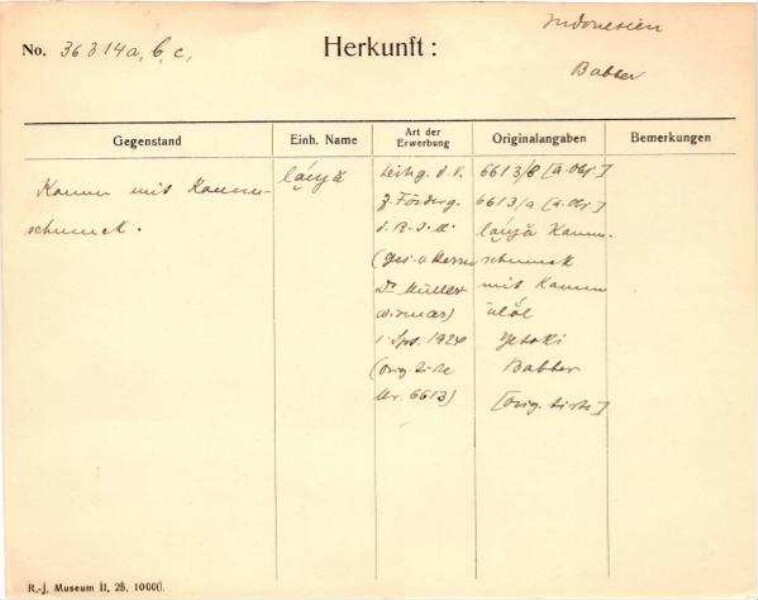 Indonesien
No. 36314a, b, c,
Herkunft:
Babber
Gegenstand
Einh. Name
Art der Erwerbung
Originalangaben
Bemerkungen
Kamm mit Kamm-
schmuck.
Leihg. d. V.
z. Förderg.
d. R. J. M.
(ges. v. Herrn
Dr Müller
Wismar)
1. Spt. 1924
(orig. Liste
Nr. 6613)
6613/B [a. Obj.]
6613/a [a. Obj.]
Kamm-
schmuck
mit Kamm
Babber
[orig. Liste]
R.-J. Museum II, 25, 10000.